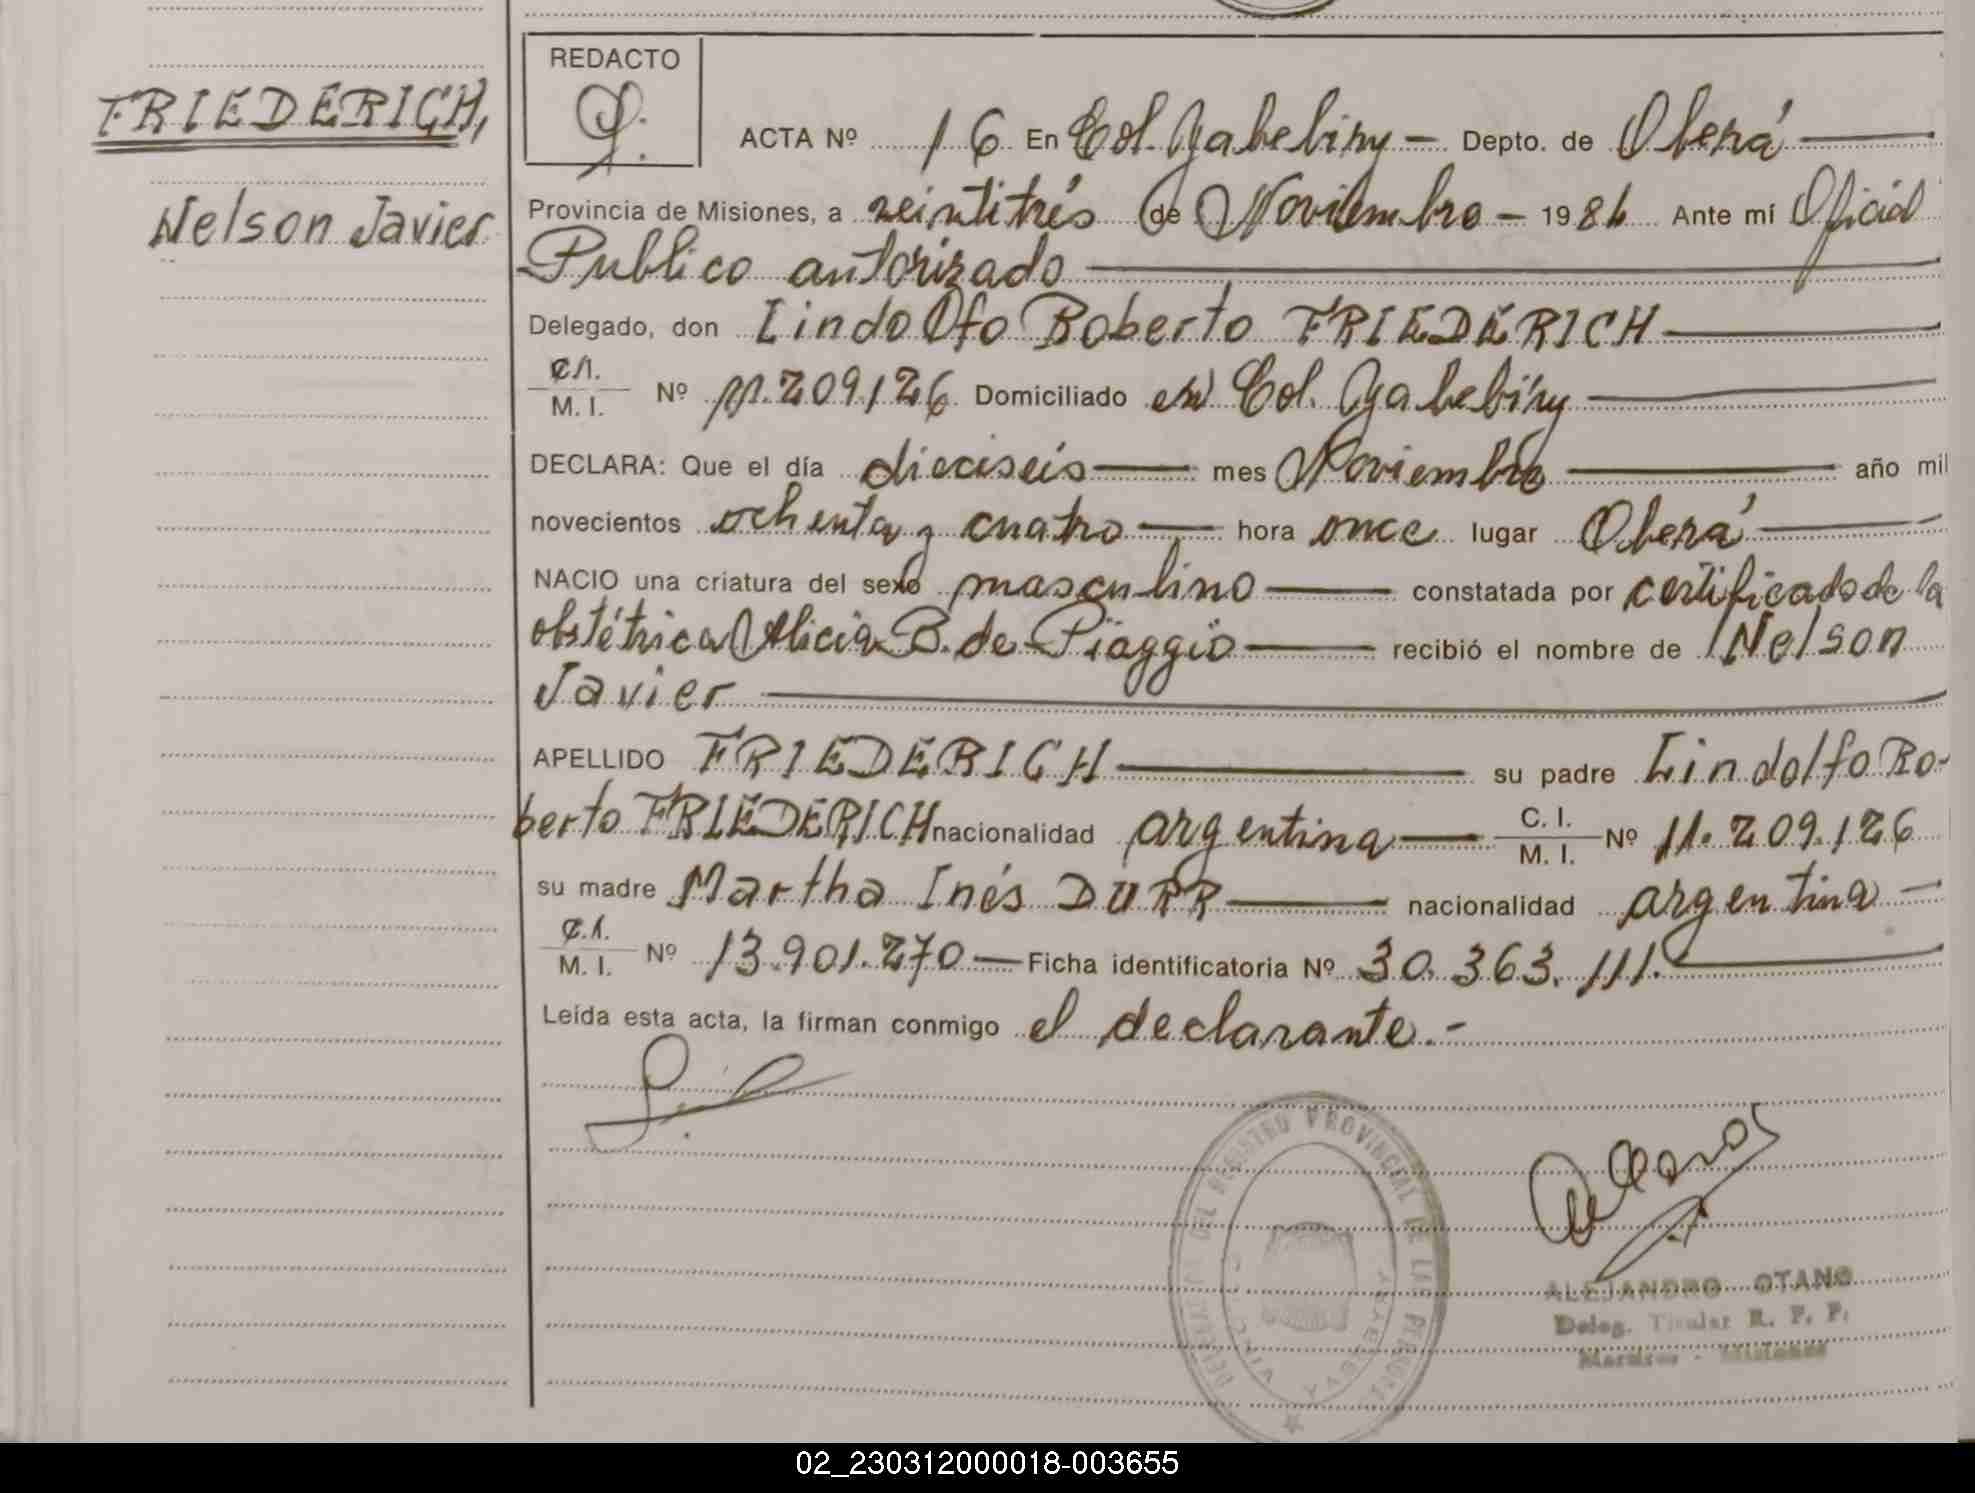 FRIEDERICH,
Nelson Javier
REDACTO
ACTA Nº 16 En Col. Yabebiry - Depto. de Oberá
Provincia de Misiones, a veintitrés de Noviembre - 1984 Ante mí Oficial
Publico autorizado
Delegado, don Lindolfo Roberto FRIEDERICH
C.I.
M. I. Nº 11.209.126 Domiciliado en Col. Yabebiry
DECLARA: Que el día dieciseis mes Noviembre año mil
novecientos ochenta y cuatro hora once lugar Oberá
NACIO una criatura del sexo masculino constatada por certificado de la
obstétrica Alicia B. de Piaggio recibió el nombre de Nelson
Javier
APELLIDO FRIEDERICH su padre Lindolfo Ro-
berto FRIEDERICH nacionalidad argentina C. I.
M. I. Nº 11.209.126
su madre Martha Inés DURR nacionalidad argentina
C.I.
M. I. Nº 13.901.270 - Ficha identificatoria Nº 30.363.111.
Leída esta acta, la firman conmigo el declarante.-
DEL REGISTRO PROVINCIAL DE LAS PERSONAS
YABEBIRY
ALEJANDRO OTANO
Deleg. Titular R. P. P.
Misiones
02_230312000018-003655